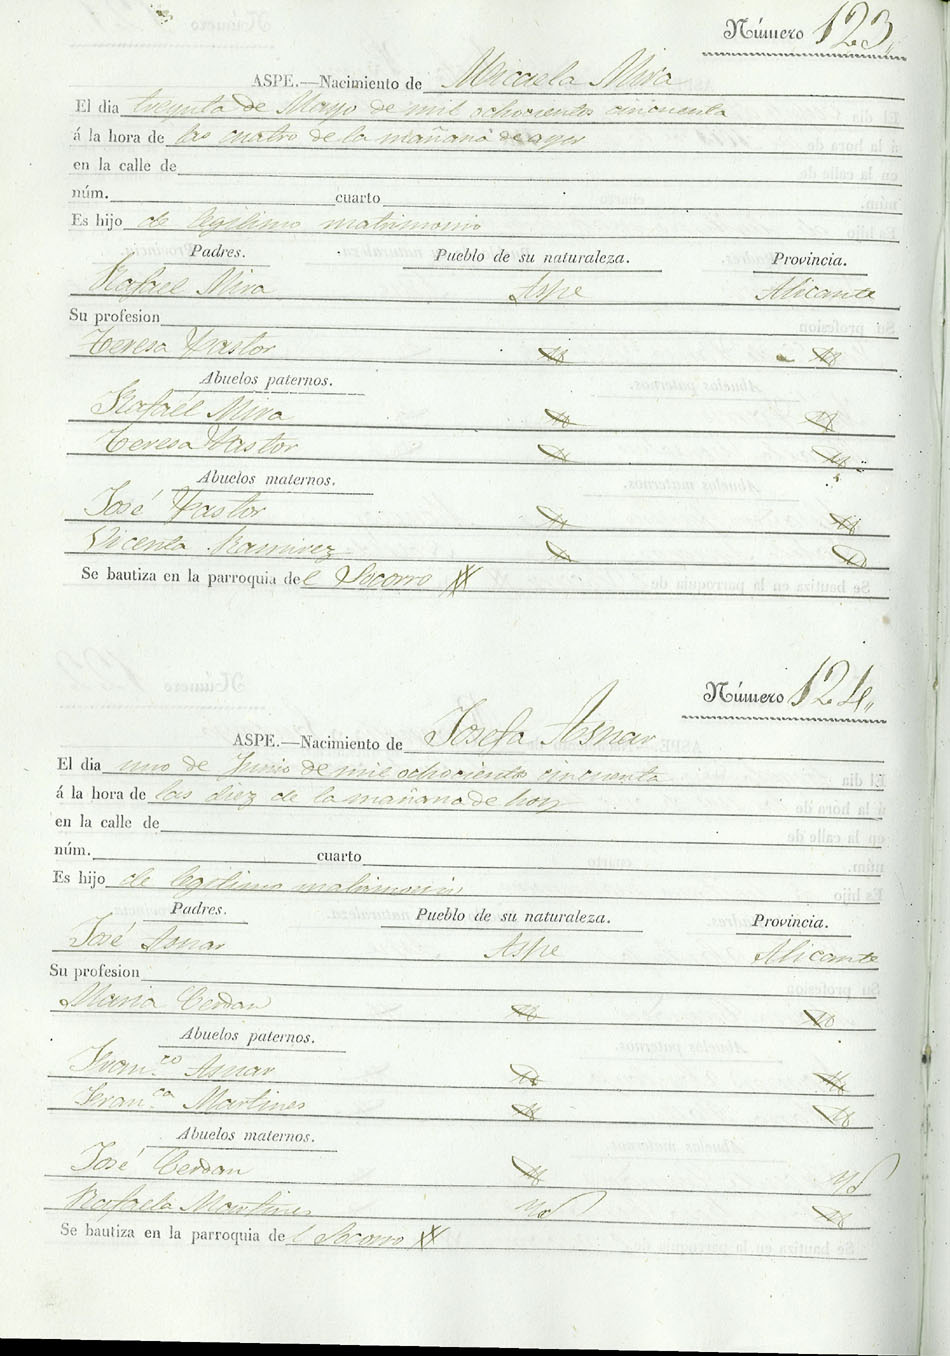 Número 123,,
ASPE.—Nacimiento de Micaela Mira
El dia treynta de Mayo de mil ochocientos cincuenta
á la hora de las cuatro de la mañana de ayer
en la calle de
núm. cuarto
Es hijo de legitimo matrimonio
Padres. Pueblo de su naturaleza. Provincia.
Rafael Mira Aspe Alicante
Su profesion
Teresa Pastor
Abuelos paternos.
Rafael Mira
Teresa Pastor
Abuelos maternos.
José Pastor
Vicenta Ramirez
Se bautiza en la parroquia del Socorro
Número 124,,
ASPE.—Nacimiento de Josefa Asnar
El dia uno de Junio de mil ochocientos cincuenta
á la hora de las diez de la mañana de hoy
en la calle de
núm. cuarto
Es hijo de legitimo matrimonio
Padres. Pueblo de su naturaleza. Provincia.
José Asnar Aspe Alicante
Su profesion
Maria Cerdan
Abuelos paternos.
Fran.co Asnar
Fran.ca Martines
Abuelos maternos.
José Cerdan
Rafaela Martines
Se bautiza en la parroquia del Socorro